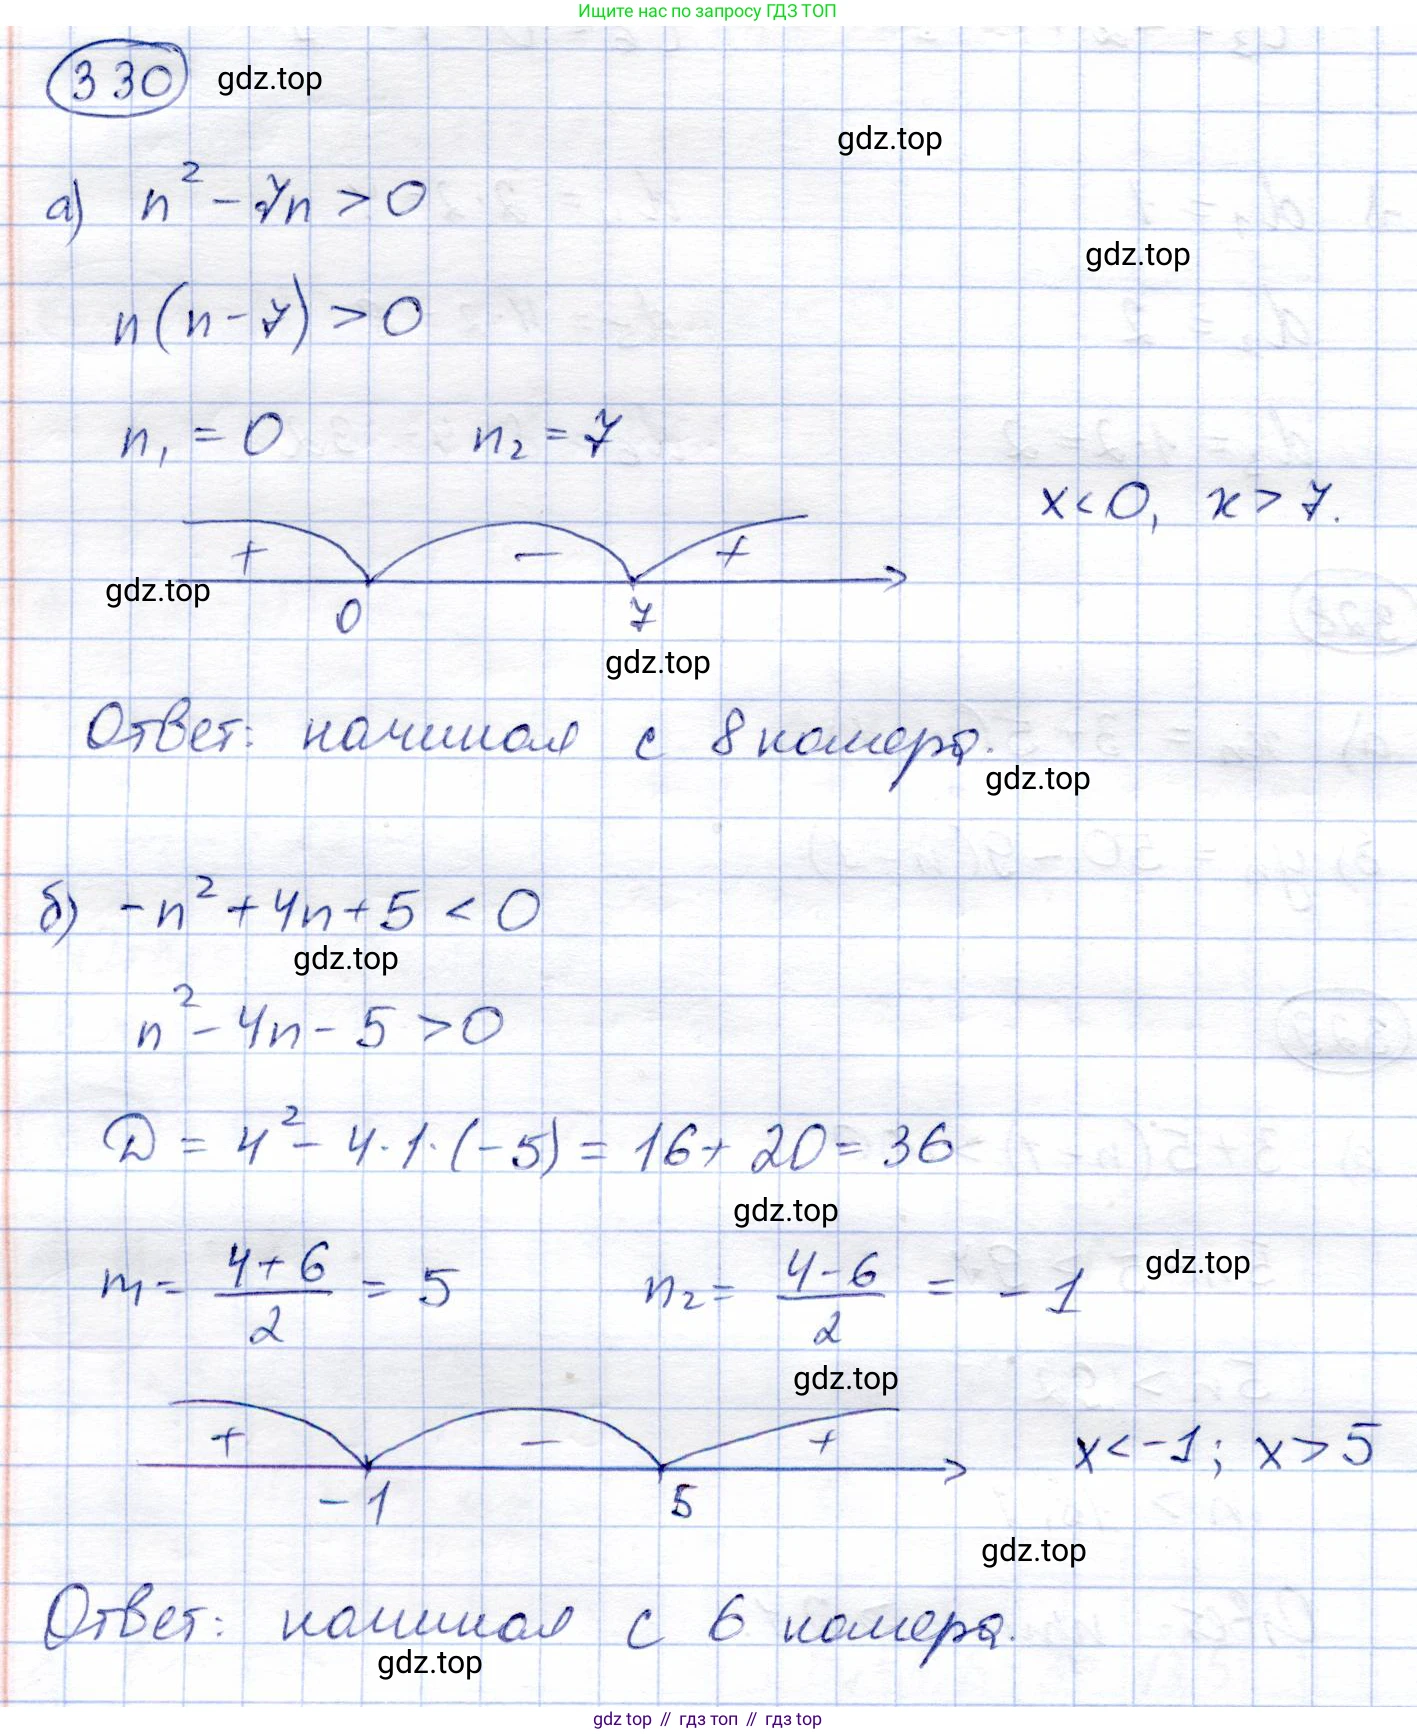 Ищите нас по запросу ГДЗ ТОП
330 gdz.top
gdz.top
а) n² - 7n > 0
gdz.top
n(n - 7) > 0
n₁ = 0 n₂ = 7
x < 0, x > 7.
+ - +
gdz.top
0 7
gdz.top
Ответ: начиная с 8 номера.
gdz.top
б) -n² + 4n + 5 < 0
gdz.top
n² - 4n - 5 > 0
D = 4² - 4·1·(-5) = 16 + 20 = 36
gdz.top
n₁ = (4+6)/2 = 5 n₂ = (4-6)/2 = -1
gdz.top
gdz.top
+ - + x < -1; x > 5
-1 5
gdz.top
Ответ: начиная с 6 номера.
gdz.top
gdz top // гдз топ // gdz top